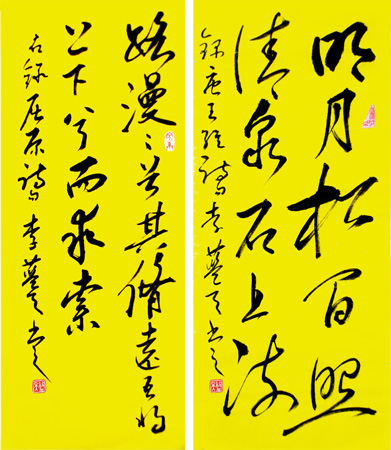 明月松间照
清泉石上流
録唐王维诗 李
路漫漫兮其脩遠吾将
上下兮而求索
右録屈原诗 李